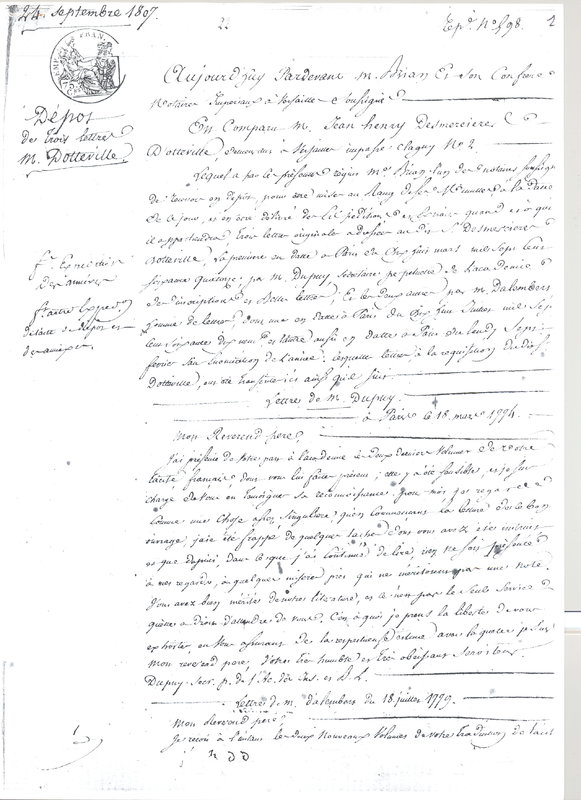 24. Septembre 1807.
22
Rep.re No 598.
1
Aujourd'huy Pardevant M. Brian Et Son Confrere
Notaires Imperiaux à Versailles Soussignés
Est Comparu M. Jean henry Desmercieres
Dotteville, demeurant à Versailles impasse Clagny No 2
Lequel a par ces présentes requis Me Brian l'un des notaires soussignés
de recevoir en depôt, pour être mises au Rang de ses Minutes à la date
de ce jour, et en être délivré des Expéditions et Extraits quand et à qui
il appartiendra Trois lettres originales adressées au dit S. Desmercieres
Dotteville, la premiere en date à Paris du dix huit mars mil sept cent
soixante quatorze; par M. Dupuy Secrétaire perpetuel de l'academie
des inscriptions et Belles lettres, Et les deux autres par M. Dalembert
homme de lettres, dont une en date à Paris du dix huit Juillet mil sept
cent soixante dix neuf et l'autre aussi en date à Paris du lundy Sept
fevrier sans énonciation de l'année; lesquelles lettres à la requisition du dit S.
Dotteville, ont été transcrites ici ainsi qu'il suit
Lettres de M. Dupuy.
à Paris le 18. mars 1774.
Mon Reverend pere,
J'ai présenté de votre part à l'académie les deux derniers Volumes de votre
tacite français, dont vous lui faites présent; elle y a été sensible, et je suis
chargé de vous en temoigner sa reconnaissance. pour moi j'ai regardé
comme une chose assez singuliere, qu'en Commencant la lecture de ce bon
ouvrage, j'aie été frappé de quelques taches dont vous avez été instruit
et que depuis, dans ce que j'ai continué de lire, rien ne se soit présenté
à mes regards, à quelques miseres près qui ne meritoient pas une note.
Vous avez bien mérité de notre litérature, et ce n'est pas le Seul Service
qu'elle a droit d'attendre de vous. C'est à quoi je prens la liberté de vous
exhorter, en vous assurant de la respectueuse estime avec laquelle je suis
Mon reverend pere, Votre très humble et très obéissant Serviteur.
Dupuy Secr. p. de l'Ac. des Ins. et B. L.
Lettre de M. d'alembert du 18. juillet 1779.
Mon Reverend pere,
Je reçois à l'instant les deux nouveaux Volumes de votre traduction de tacite
Dépot
des trois lettres
M. Dotteville